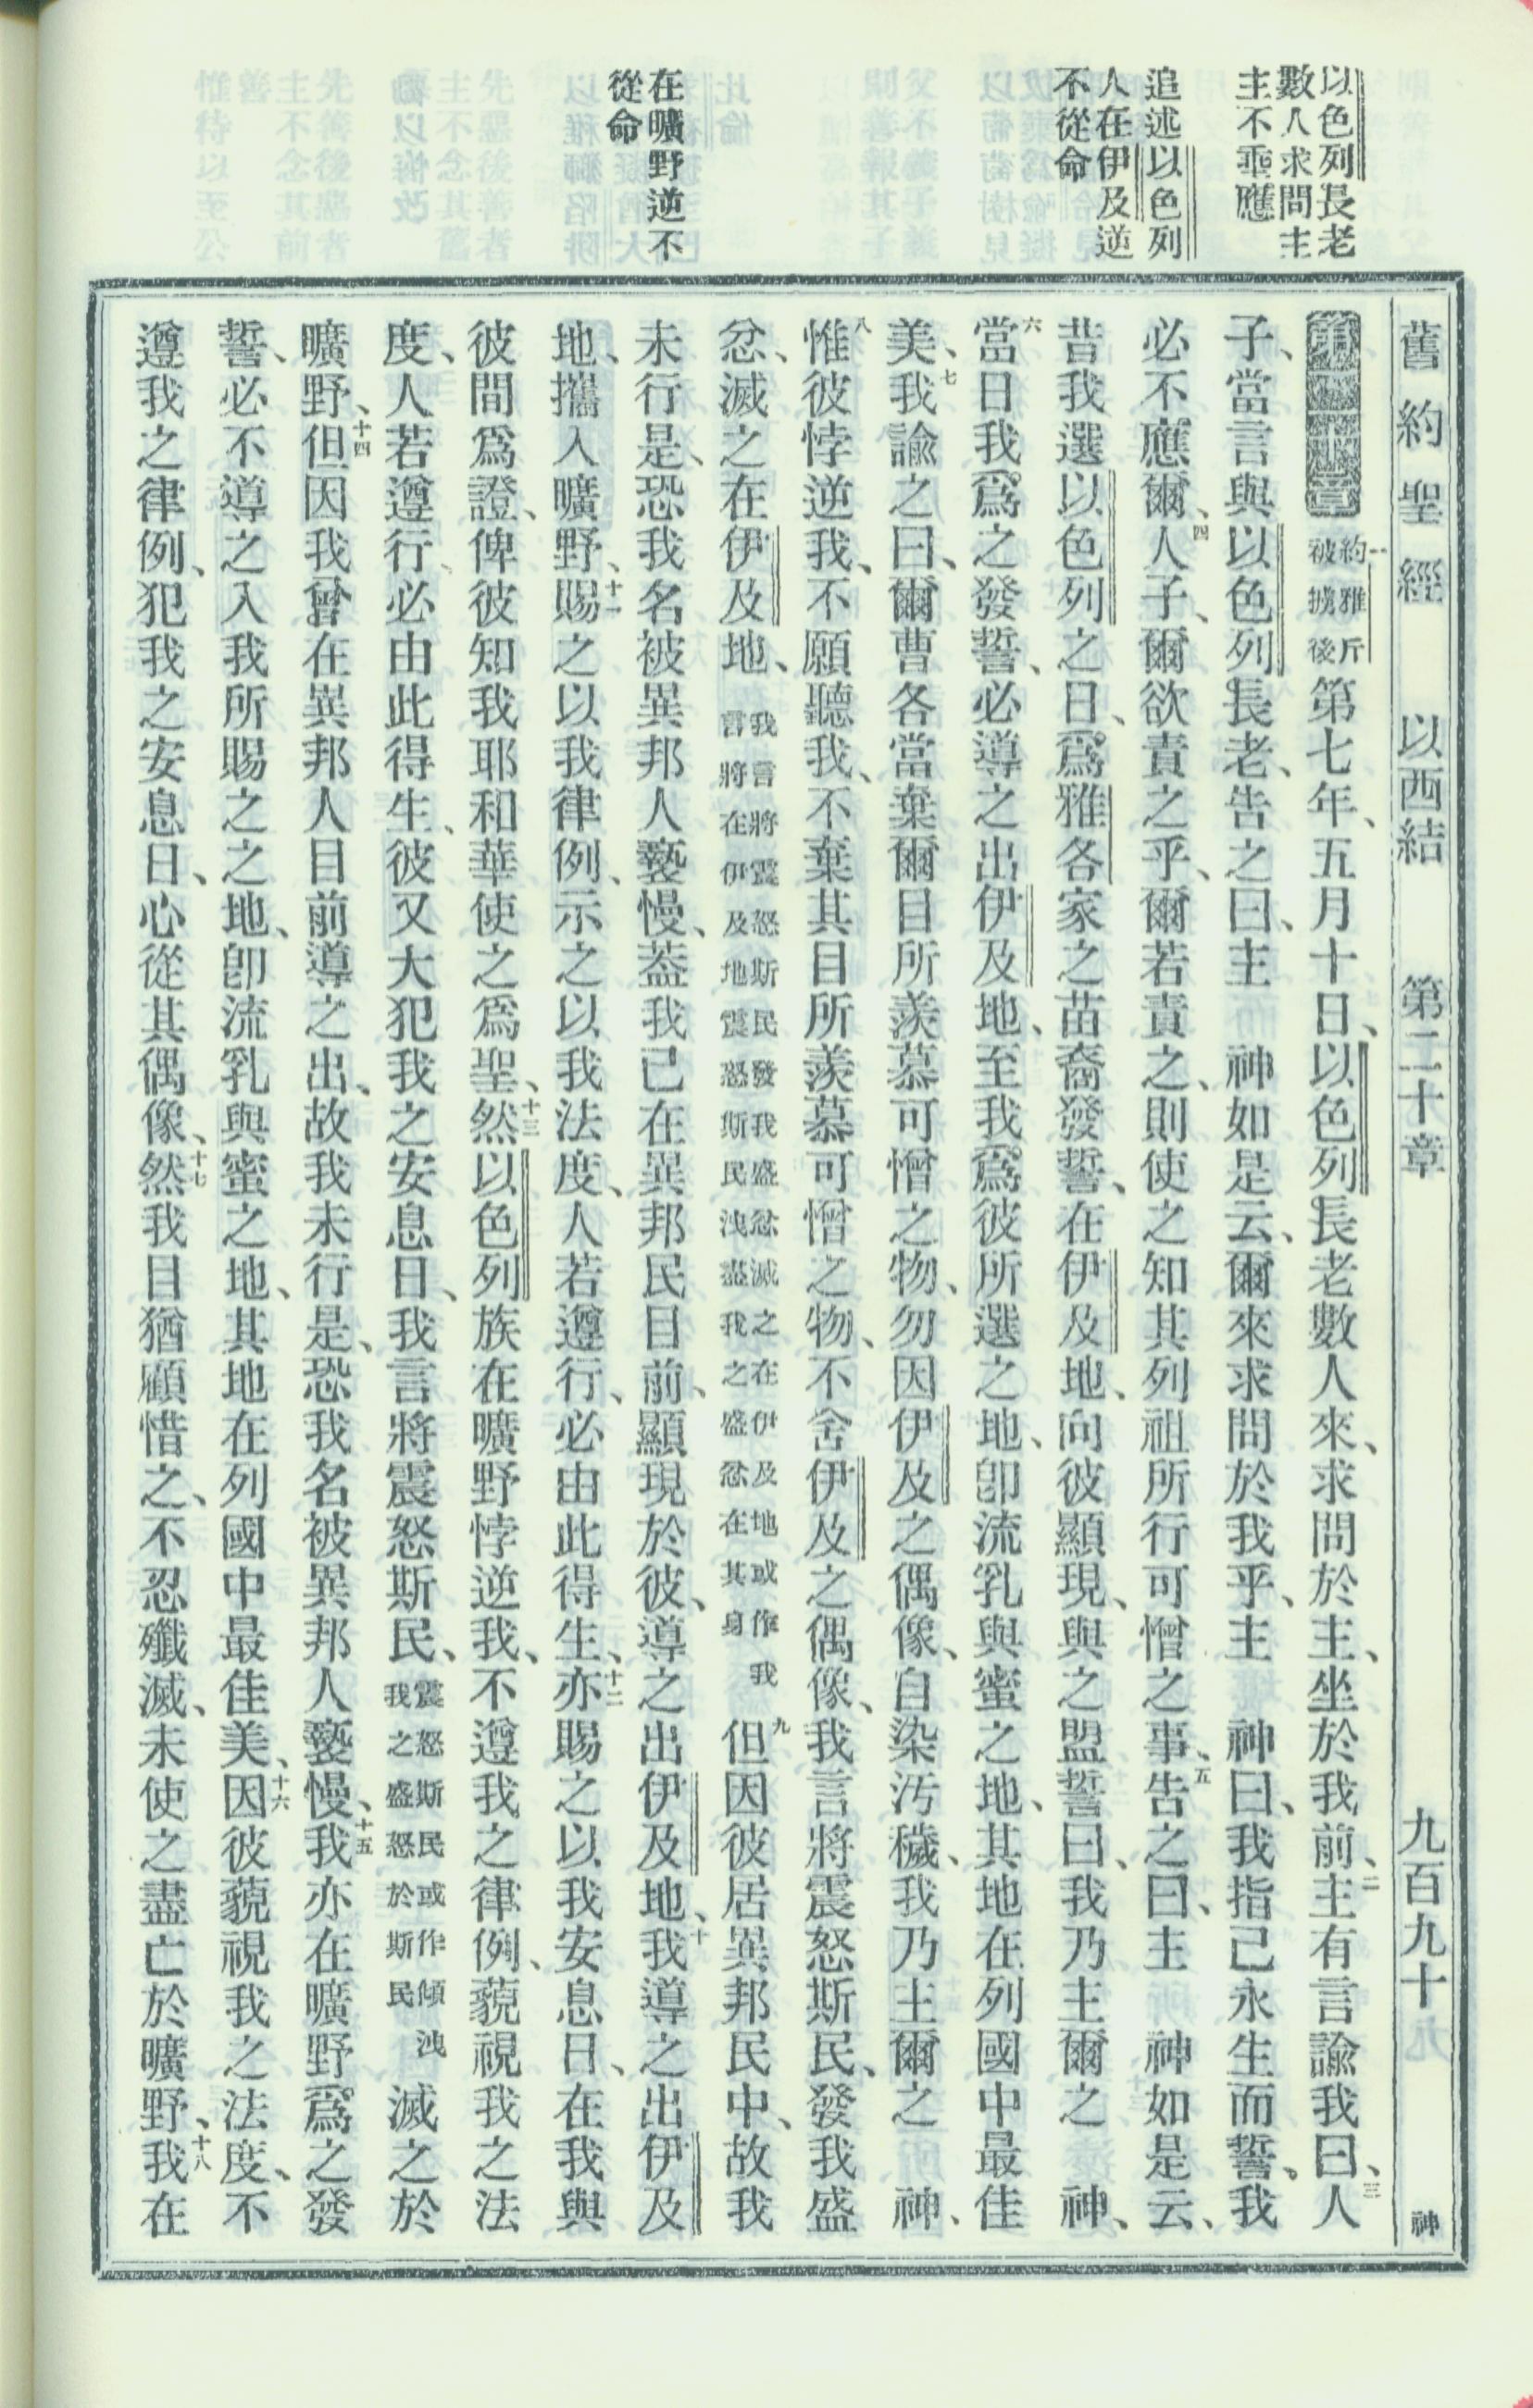 以色列長老
數人求問主
主不垂應
追述以色列
人在伊及逆
不從命
在曠野逆不
從命
舊約聖經 以西結 第二十章 九百九十九 神
第二十章 一 約雅斤被擄後第七年、五月十日、以色列長老數人來、求問於主、坐於我前、二主有言諭我曰、三人
子、當言與以色列長老、告之曰、主 神如是云、爾來求問於我乎、主 神曰、我指己永生而誓、我
必不應爾、四人子、爾欲責之乎、爾若責之、則使之知其列祖所行可憎之事、五告之曰、主 神如是云、
昔我選以色列之日、爲雅各家之苗裔發誓、在伊及地、向彼顯現、與之盟誓曰、我乃主爾之 神、
六當日我爲之發誓、必導之出伊及地、至我爲彼所選之地、卽流乳與蜜之地、其地在列國中最佳
美、七我諭之曰、爾曹各當棄爾目所羨慕可憎之物、勿因伊及之偶像、自染污穢、我乃主爾之 神、
八惟彼悖逆我、不願聽我、不棄其目所羨慕可憎之物、不舍伊及之偶像、我言將震怒斯民、發我盛
忿、滅之在伊及地、我言將震怒斯民發我盛忿滅之在伊及地或作我言將在伊及地震怒斯民洩盡我之盛忿在其身 九但因彼居異邦民中、故我
未行是、恐我名被異邦人褻慢、蓋我已在異邦民目前、顯現於彼、導之出伊及地、十我導之出伊及
地、攜入曠野、十一賜之以我律例、示之以我法度、人若遵行、必由此得生、十二亦賜之以我安息日、在我與
彼間爲證、俾彼知我耶和華使之爲聖、十三然以色列族在曠野悖逆我、不遵我之律例、藐視我之法
度、人若遵行、必由此得生、彼又大犯我之安息日、我言將震怒斯民、震怒斯民或作傾洩我之盛怒於斯民 滅之於
曠野、十四但因我曾在異邦人目前導之出、故我未行是、恐我名被異邦人褻慢、十五我亦在曠野爲之發
誓、必不導之入我所賜之之地、卽流乳與蜜之地、其地在列國中最佳美、十六因彼藐視我之法度、不
遵我之律例、犯我之安息日、心從其偶像、十七然我目猶顧惜之、不忍殲滅、未使之盡亡於曠野、十八我在